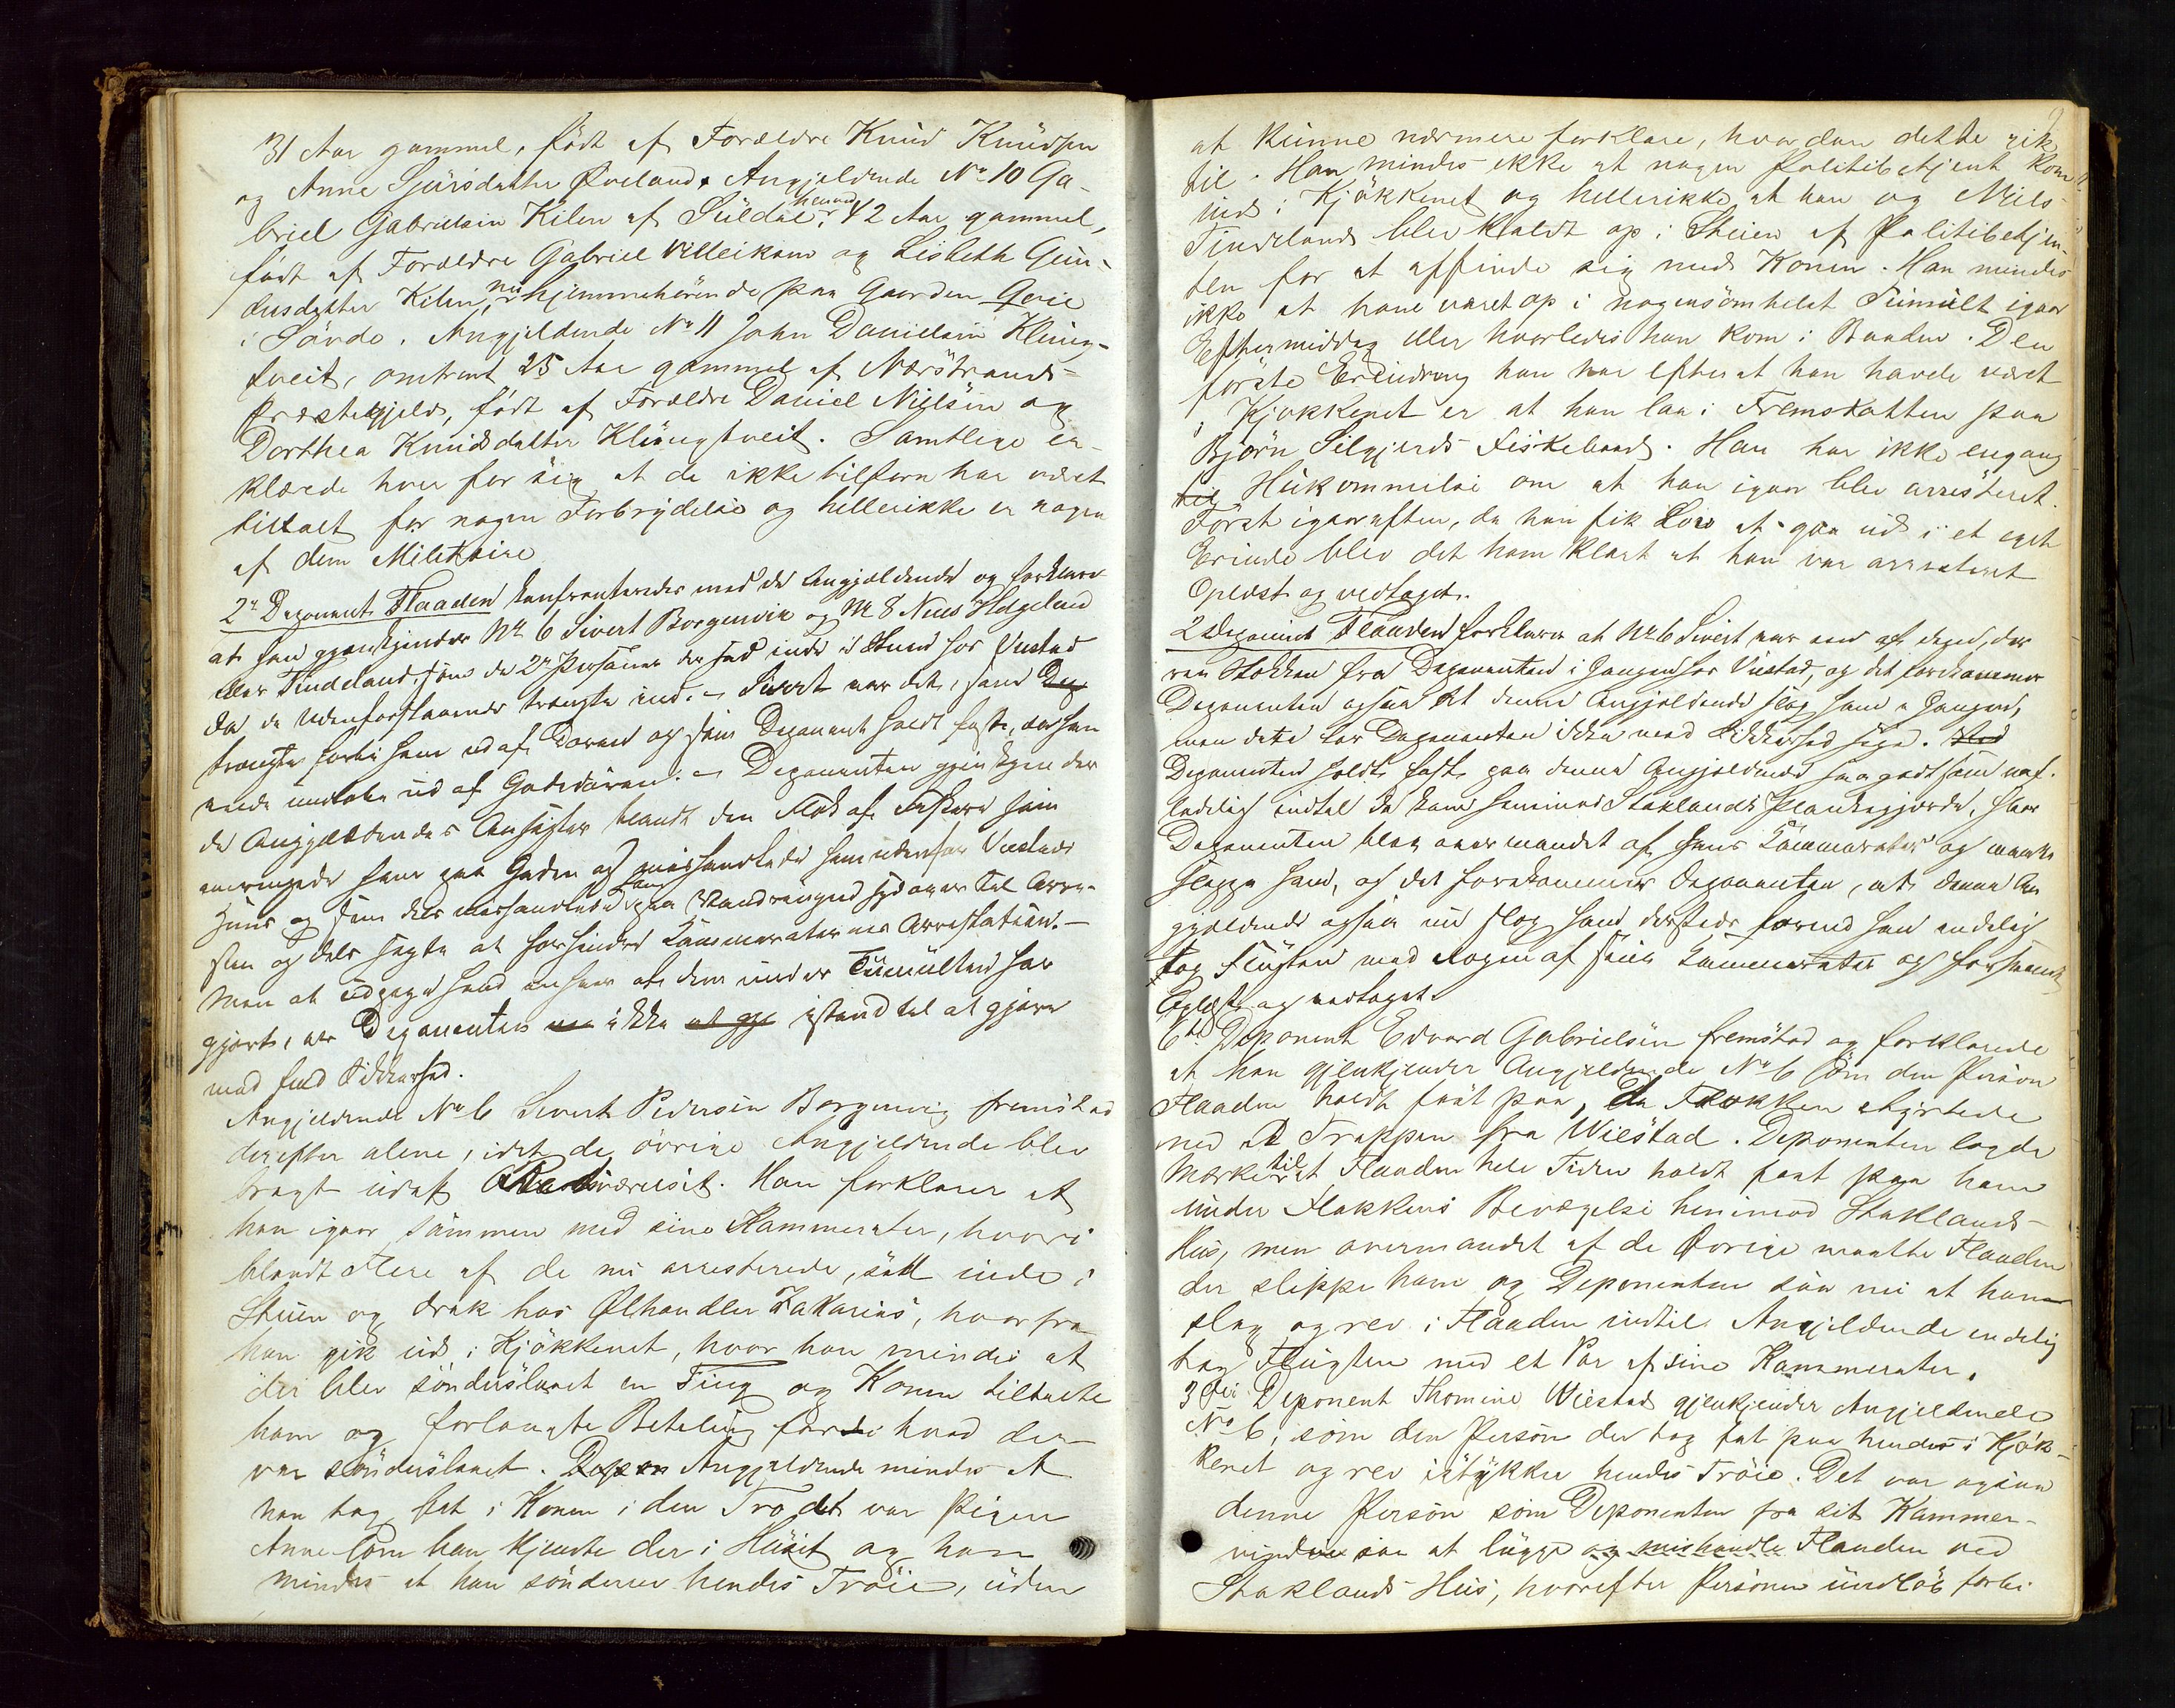 31 Aar gammel, födt af Forældre Knud Knudsen
og Anne Sjursdatter Øveland. Angjeldende No 10 Ga-
briel Gabrielsen Kilen af Suldal, 42 Aar gammel,
födt af Forældre Gabriel Villeiksen og Lisbeth Gun-
dersdatter Kilen, nu hjemmehörende paa Gaarden
i Sövde. Angjeldende No 11 John Danielsen Kling-
tveit, omtrent 25 Aar gammel af Nærstrands
Præstegjeld, födt af Forældre Daniel Nielsen og
Dorthea Knudsdatter Klingtveit. Samtlige er-
klærede hver for sig at de ikke tilforn har været
tiltalt for nogen Forbrydelse og hellerikke er nogen
af dem Militaire
2n Deponent Flaaden konfronteredes med de Angjældende og forklarer
at han gjenkjender No 6 Sivert Borgenvig og No 8 Niels Helgeland
eller Tindeland, som de 2de Personer der sad inde i Stuen hos Viestad
da de udenforstaaende trængte ind. - Sivert var det, som Dep
trængte forbi ham ud af Døren og som Deponent holdt fast, da han
vilde undlöbe ud af Gadedören. - Deponenten gjenkjender
de Angjældendes Ansigter blandt den Flok af Fiskere som
omringede ham paa Gaden og mishandlede ham udenfor Viestads
Huus og som dels mishandlede ham paa Vandringen hjemover til Arre-
sten og dels søgte at forhindre Kammeraternes Arrestation. -
Men at udpege hvad enhver af dem under Tumulten har
gjort, er Deponenten ikke istand til at gjöre
med fuld Sikkerhed.
Angjeldende No 6 Sivert Pedersen Borgenvig fremstod
derefter alene, idet de övrige Angjeldende blev
bragt udaf Retsværelset. Han forklarer at
han igaar sammen med sine Kammerater, hvori-
blandt Flere af de nu arresterede, satt inde i
Stuen og drak hos Ølhandler Zakarias, hvorfra
han gik ud i Kjökkenet, hvor han mindes at
der blev sönderslaaet en Ting og Konen tiltalte
ham og forlangte Betaling for hvad der
var sönderslaaet. Depon Angjeldende mindes at
han tog fat i Konen i den Tro det var Pigen
Anne som han kjendte der i Huset og han
mindes at han sönderrev hendes Tröie, uden
at kunne nærmere forklare, hvordan dette gik
til. Han mindes ikke at nogen Politibetjent kom
ind i Kjökkenet og hellerikke at han og Niels
Tindeland blev kaldt op i Stuen af Politibetjen-
ten for at affinde sig med Konen. Han mindes
ikke at have været op i nogensomhelst Tumult igaar
Eftermiddag eller hvorledes han kom i Baaden. Den
förste Erindring han har efterat han havde været
i Kjökkenet er at han laa i Fremskotten paa
Björn Silgjerds Fiskebaad. Han har ikke engang
Hukommelse om at han igaar blev arresteret.
Först igaaraften, da han fik Lov at gaa ud i et eget
Erinde blev det ham klart at han var arresteret
Oplæst og vedtaget.
2 Deponent Flaaden forklarer at No 6 Sivert var en af dem, der
rev Stokken fra Deponenten i Gangen hos Viestad, og det forekommer
Deponenten ogsaa at denne Angjældende slog ham i Gangen,
men dette tør Deponenten ikke med Sikkerhed sige.
Deponenten holdt fast paa denne Angjældende saa godt som uaf-
ladelig indtil de kom henimod Staklands Plankegjærde, hvor
Deponenten blev overmandet af hans Kammerater og maatte
slippe ham, og det forekommer Deponenten, at denne An
gjældende ogsaa nu slog ham dersteds forend han endelig
tog Flugten med Nogen af sine Kammerater og forsvandt
Oplæst og vedtaget.
6te Deponent Edvard Gabrielsen fremstod og forklarede
at han gjenkjender Angjeldende No 6 som den Person
Flaaden holdt fast paa, da Flokken styrtede
ned at Trappen fra Wiestad. Deponenten lagde
Mærke til at Flaaden hele Tiden holdt fast paa ham
under Flokkens Bevægelse henimod Staklands
Hus, men overmandet af de Øvrige maatte Flaaden
der slippe ham og Deponenten saa nu at han
slog og rev i Flaaden indtil Angjeldende endelig
tog Flugten med et Par af sine Kammerater.
3die Deponent Thomine Wiestad gjenkjender Angjeldende
No 6, som den Person der tog fat paa hende i Kjök-
kenet og rev istykker hendes Tröie. Det var ogsaa
denne Person som Deponenten fra sit Kammer-
vindue saa at lugge og mishandle Flaaden ved
Staklands Hus, hvorefter Personen undlöb forbi